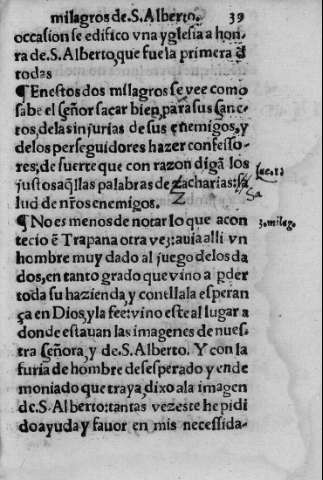 milagros de. S. Alberto. 39
occasion se edifico vna yglesia a hon
ra de. S. Alberto, que fue la primera d̄
todas
¶ En estos dos milagros se vee como
sabe el señor sacar bien, para sus sanc-
tos, de las injurias de sus enemigos, y
de los perseguidores hazer confesso-
res; de suerte que con razon digā los
justos aq̄llas palabras de zacharias: sa
lud de nr̄os enemigos.
¶ No es menos de notar lo que acon
tecio ē Trapana otra vez: auia alli vn
hombre muy dado al juego de los da
dos, en tanto grado que vino a p̱der
toda su hazienda, y con ella la esperan
ça en Dios, y la fee: vino este al lugar a
donde estauan las imagenes de nues-
tra señora, y de. S. Alberto. Y con la
furia de hombre desesperado y ende
moniado que traya, dixo a la imagen
de. S. Alberto: tantas vezes te he pidi
do ayuda y fauor en mis necessida-
3. milago